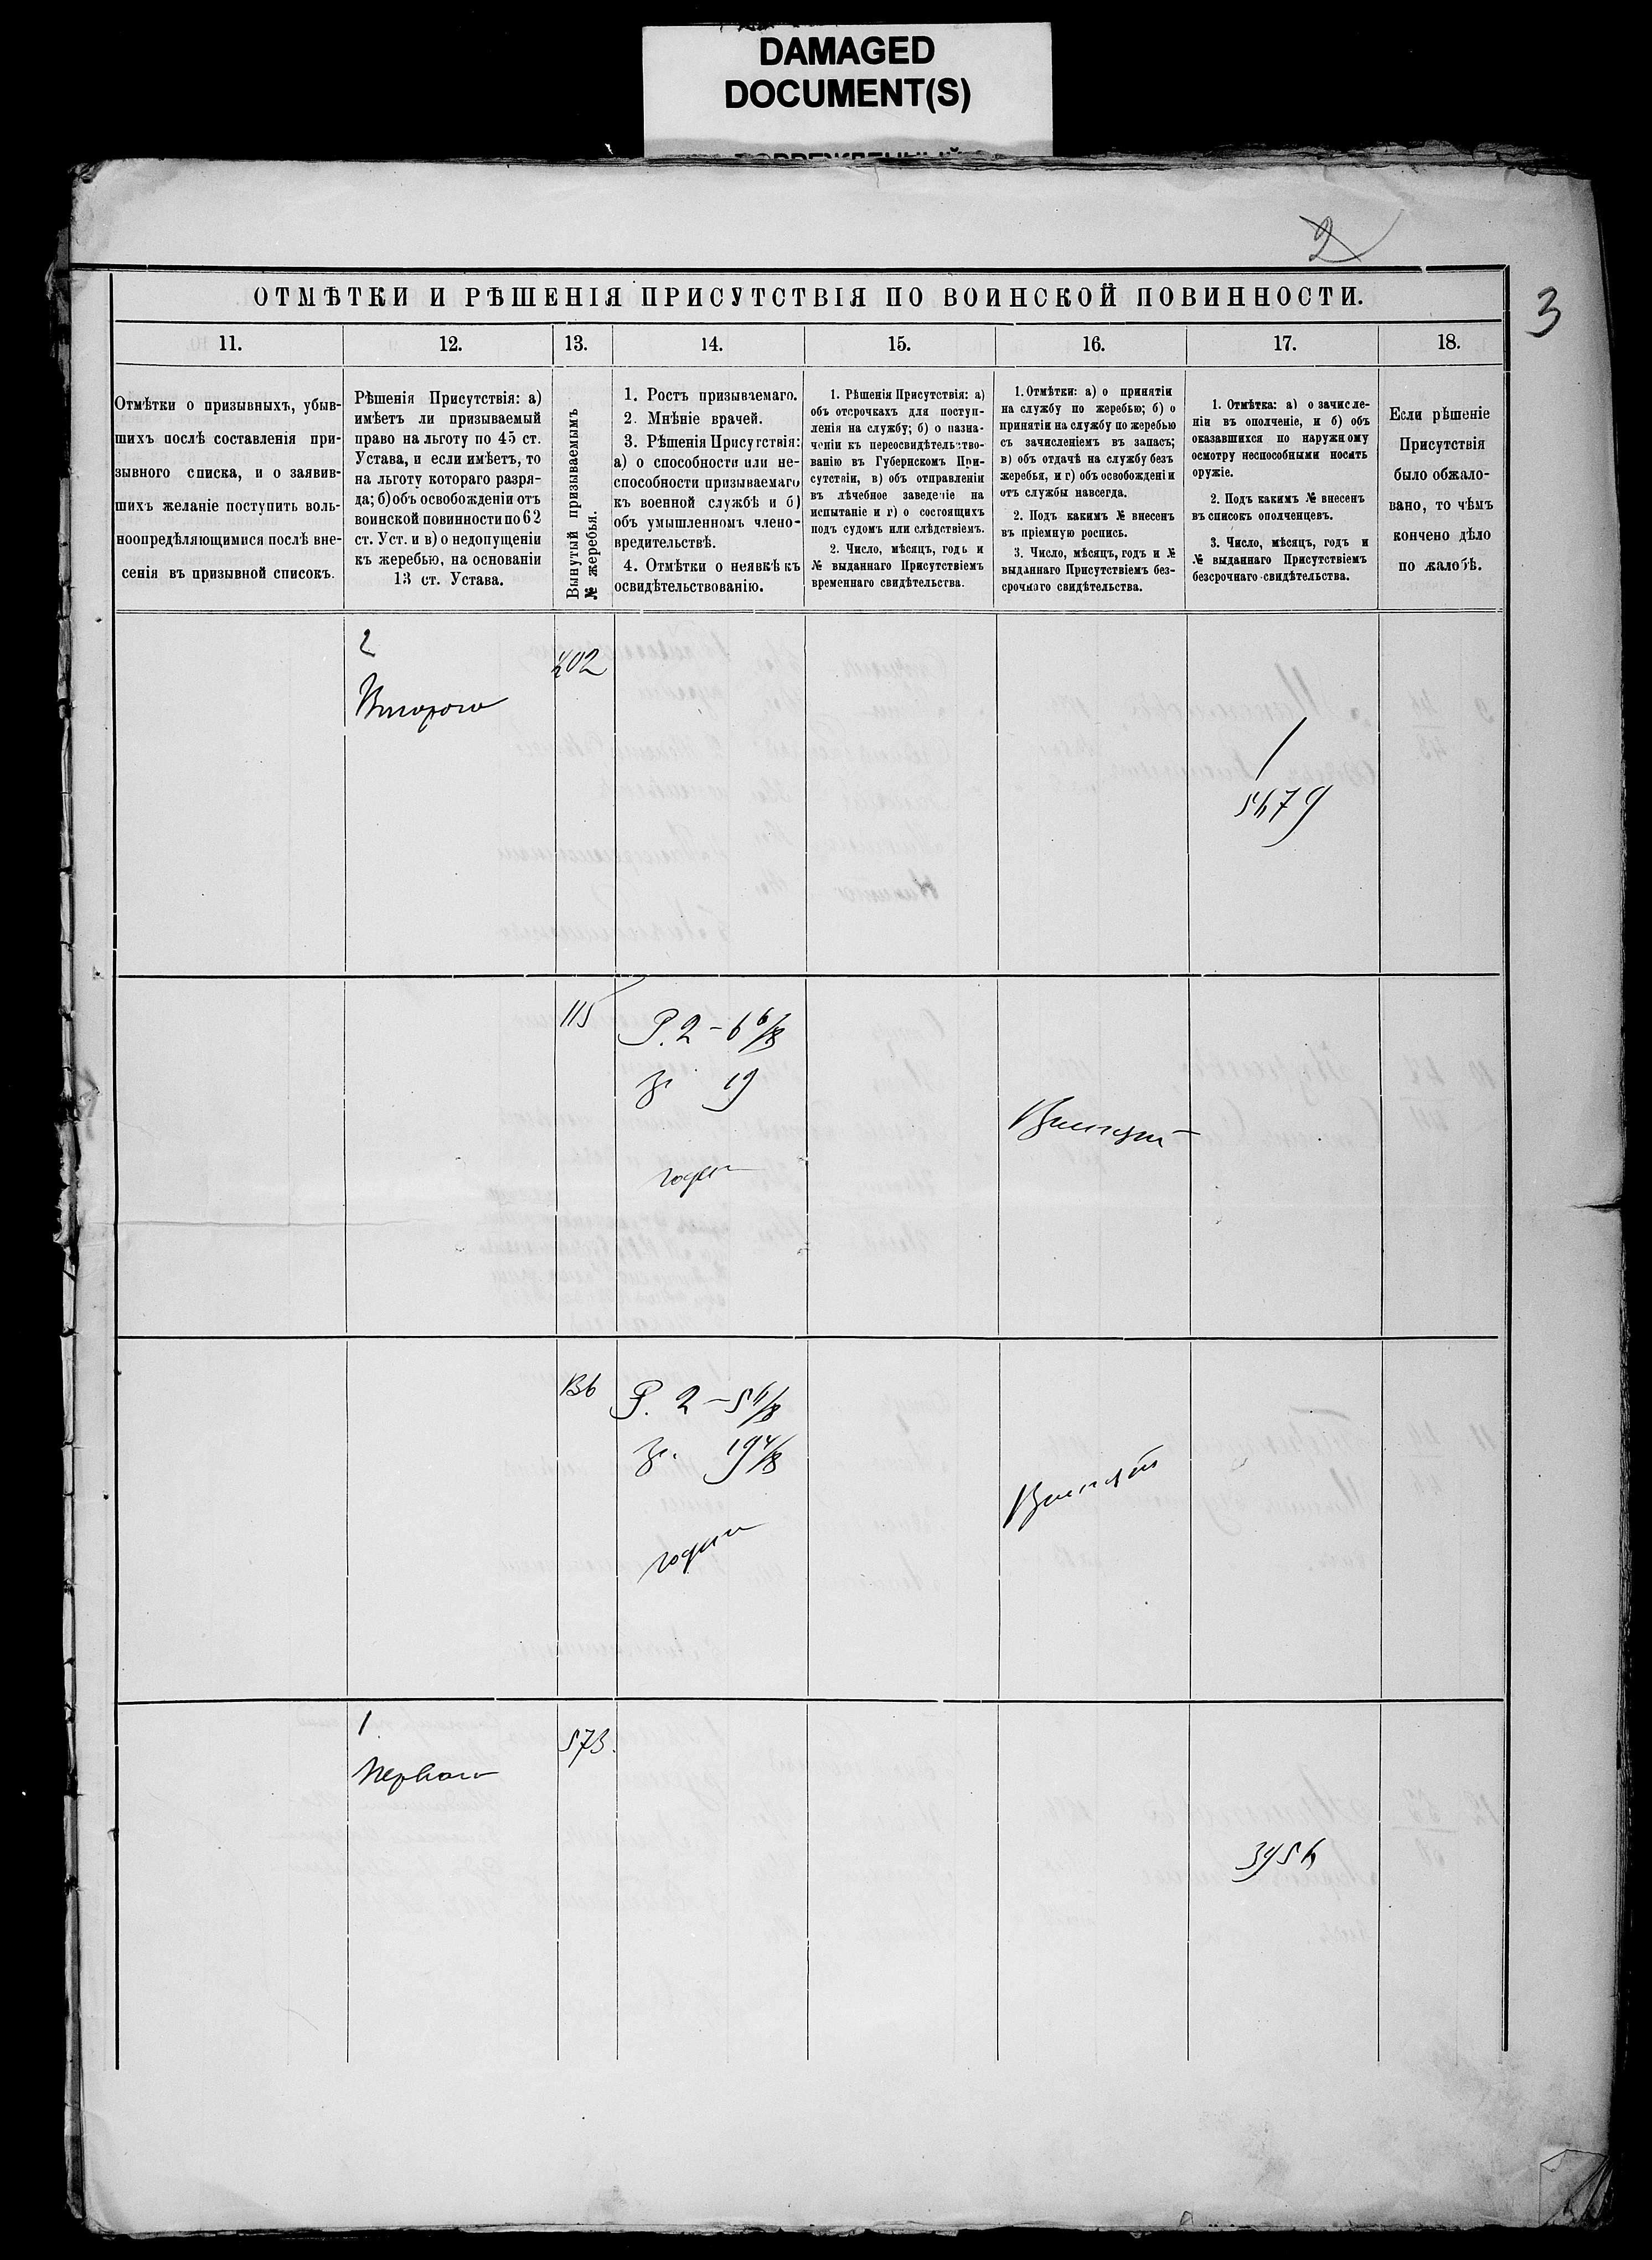 DAMAGED
DOCUMENT(S)
2
3
ОТМѢТКИ И РѢШЕНІЯ ПРИСУТСТВІЯ ПО ВОИНСКОЙ ПОВИННОСТИ.
11.
12.
13.
14.
15.
16.
17.
18.
Отмѣтки о призывныхъ, убыв-
шихъ послѣ составленія при-
зывного списка, и о заявив-
шихъ желаніе поступить воль-
ноопредѣляющимися послѣ вне-
сенія въ призывной списокъ.
Рѣшенія Присутствія: а)
имѣетъ ли призываемый
право на льготу по 45 ст.
Устава, и если имѣетъ, то
на льготу котораго разря-
да; б) объ освобожденіи отъ
воинской повинности по 62
ст. Уст. и в) о недопущеніи
къ жеребью, на основаніи
13 ст. Устава.
Вынутый призываемымъ
№ жеребья.
1. Ростъ призываемаго.
2. Мнѣніе врачей.
3. Рѣшенія Присутствія:
а) о способности или не-
способности призываемаго
къ военной службѣ и б)
объ умышленномъ члено-
вредительствѣ.
4. Отмѣтки о неявкѣ къ
освидѣтельствованію.
1. Рѣшенія Присутствія: а)
объ отсрочкахъ для поступ-
ленія на службу; б) о назна-
ченіи къ переосвидѣтельство-
ванію въ Губернскомъ При-
сутствіи, в) объ отправленіи
въ лѣчебное заведеніе на
испытаніе и г) о состоящихъ
подъ судомъ или слѣдствіемъ.
2. Число, мѣсяцъ, годъ и
№ выданнаго Присутствіемъ
временнаго свидѣтельства.
1. Отмѣтки: а) о принятіи
на службу по жеребью; б) о
принятіи на службу по жеребью
съ зачисленіемъ въ запасъ;
в) объ отдачѣ на службу безъ
жеребья, и г) объ освобожденіи
отъ службы навсегда.
2. Подъ какимъ № внесенъ
въ пріемную роспись.
3. Число, мѣсяцъ, годъ и №
выданнаго Присутствіемъ без-
срочнаго свидѣтельства.
1. Отмѣтка: а) о зачисле-
ніи въ ополченіе, и б) объ
оказавшихся по наружному
осмотру неспособными носить
оружіе.
2. Подъ какимъ № внесенъ
въ списокъ ополченцевъ.
3. Число, мѣсяцъ, годъ и
№ выданнаго Присутствіемъ
безсрочнаго свидѣтельства.
Если рѣшеніе
Присутствія
было обжало-
вано, то чѣмъ
кончено дѣло
по жалобѣ.
2
Второго
402
1
5479
115
Р. 2 – 6 6/8
19
годен
136
Р. 2 – 5 4/8
19 4/8
годен
1
Перваго
573.
3454